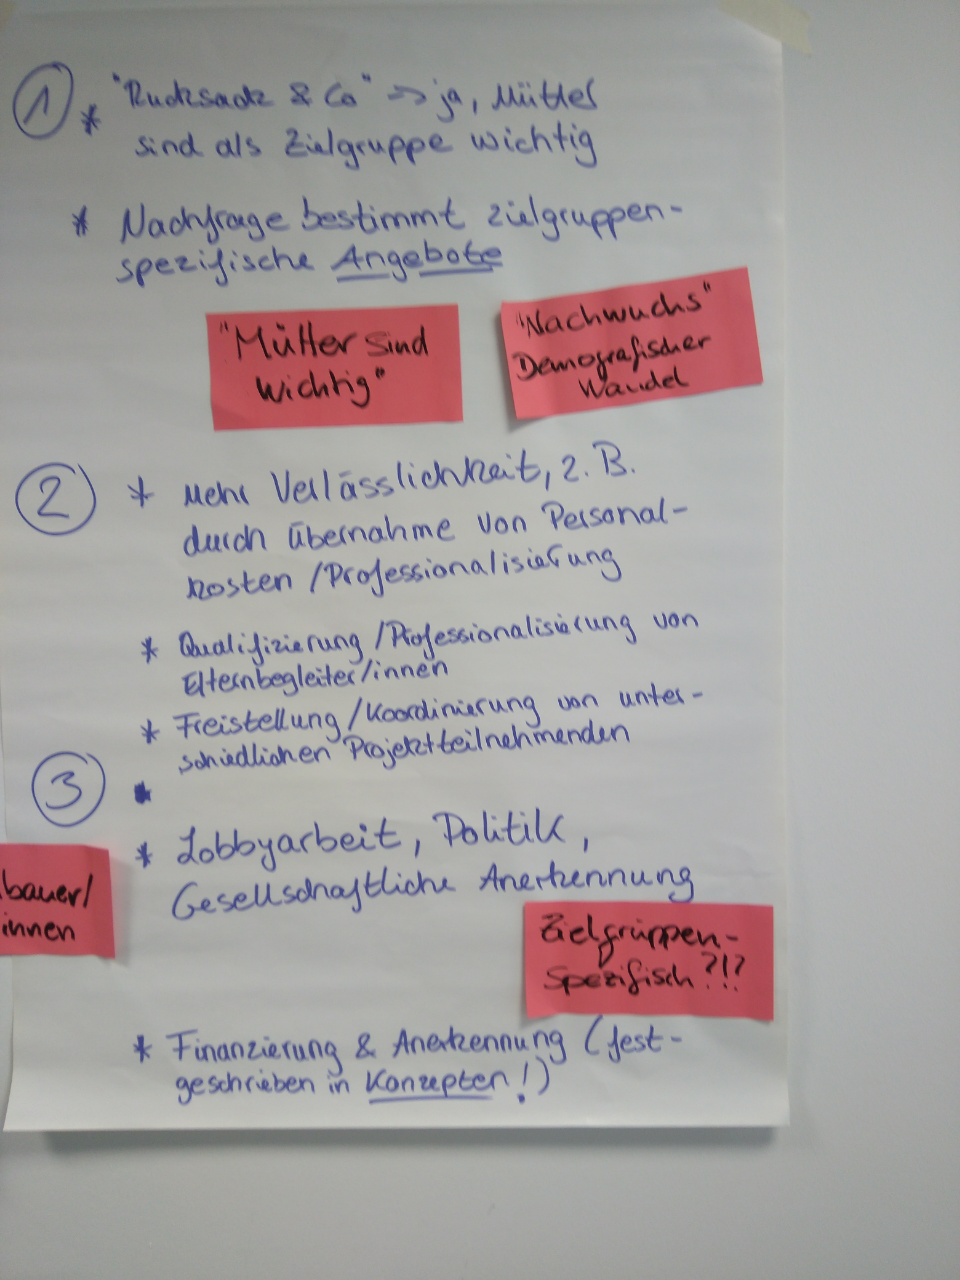 ① * "Rucksack & Co" => ja, Mütter
sind als Zielgruppe wichtig
* Nachfrage bestimmt zielgruppen-
spezifische Angebote
"Mütter sind
wichtig"
"Nachwuchs"
Demografischer
Wandel
② * Mehr Verlässlichkeit, z.B.
durch Übernahme von Personal-
kosten/Professionalisierung
* Qualifizierung/Professionalisierung von
Elternbegleiter/innen
* Freistellung/Koordinierung von unter-
schiedlichen Projektteilnehmenden
③
* Lobbyarbeit, Politik,
Gesellschaftliche Anerkennung
bauer/
innen
Zielgruppen-
spezifisch?!?
* Finanzierung & Anerkennung (fest-
geschrieben in Konzepten!)